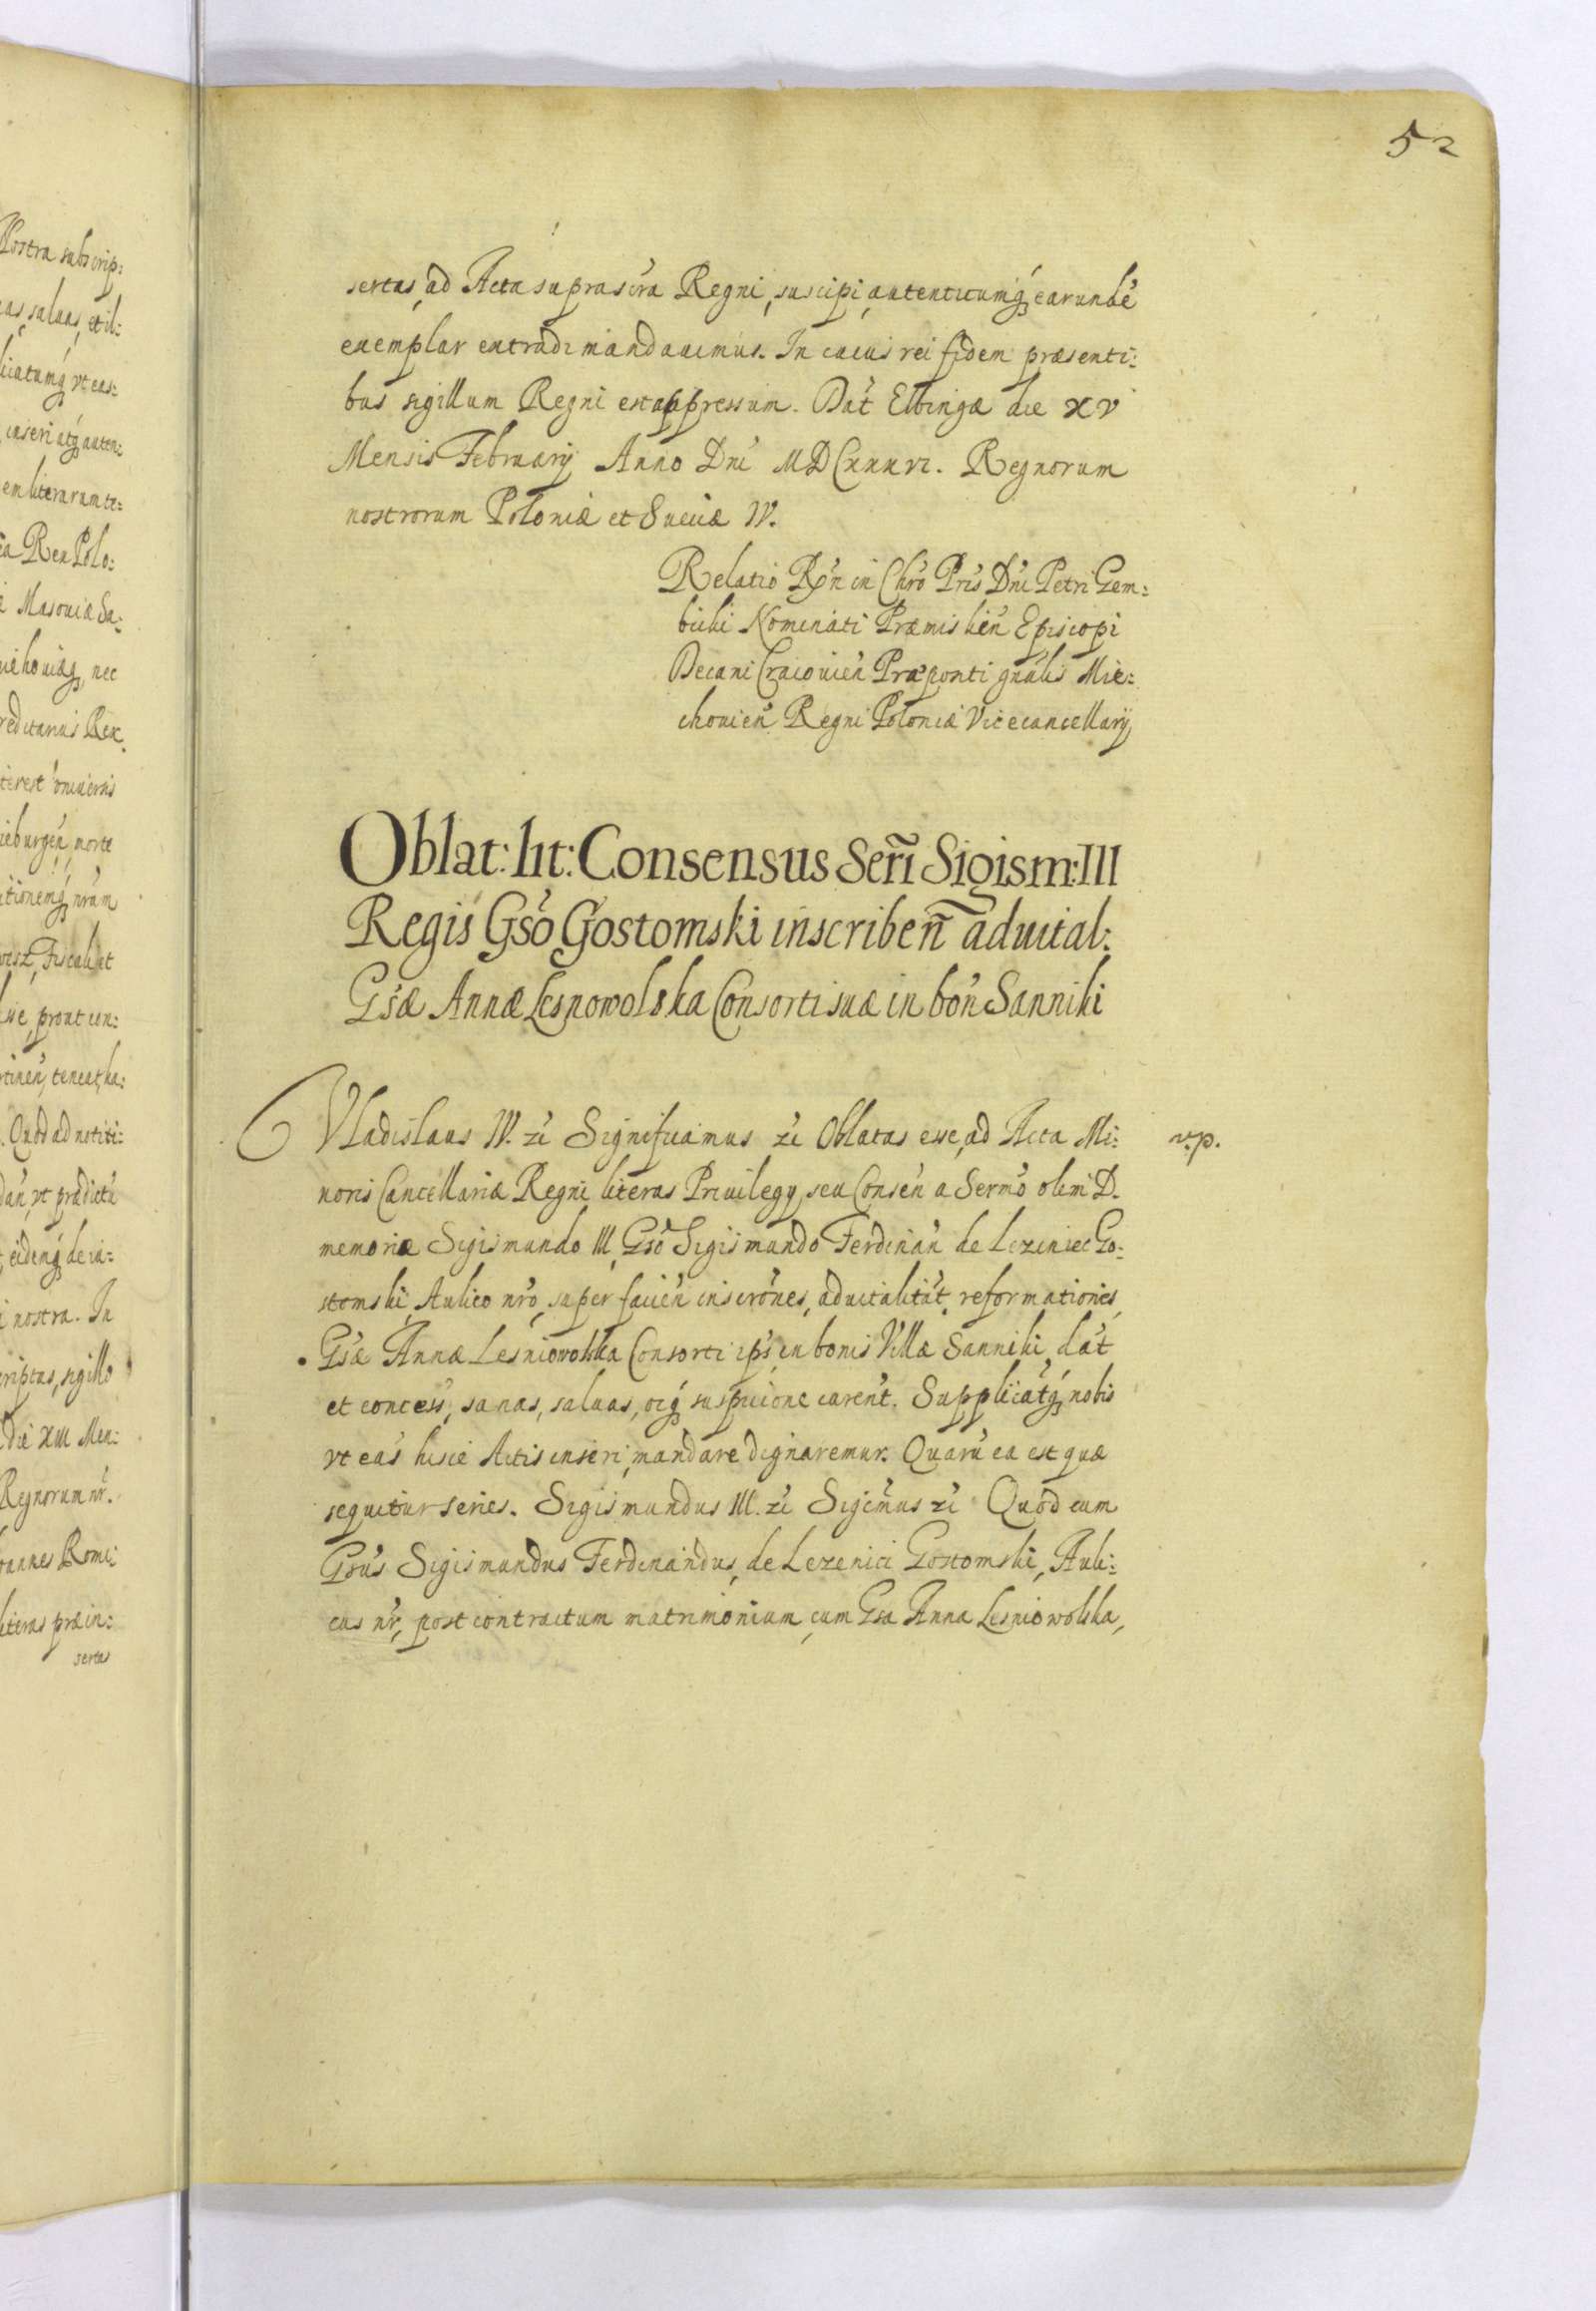 52
sertas, ad Acta suprascra Regni, suscipi, autenticumq́ earundē
exemplar extradi mandauimus. In cuius rei fidem præsenti:
bus sigillum Regni est appressum. Dat Elbingæ die XV
Mensis February Anno Dni MDCxxxvi. Regnorum
nostrorum Poloniæ et Sueciæ IV.
Relatio Rṽn in Chrō Pris Dni Petri Gem:
bicki Nominati Præmislien Episcopi
Decani Cracouien Præponti gnālis Mie:
chouien Regni Poloniæ Vicecancellarij
Oblat: lit: Consensus Serm̃i Sigism: III
Regis Gsō Gostomski inscriben̄ aduital:
Gsæ Annæ Lesnowolska Consorti suæ in bon̄ Sanniki
Vladislaus IV. zc Significamus zc Oblatas esse, ad Acta Mi:
v.p.
noris Cancellariæ Regni literas Priuilegy seu Consen̄ a Sermō olim D.
memoriæ Sigismundo III, Gsō Sigismundo Ferdinan̄ de Lezeniec Go:
stomski, Aulico nrō, super facien̄ inscrōnes, aduitalitat̄, reformationes,
Gsæ Annæ Lesniowolska Consorti ips̄, in bonis Villæ Sanniki, dat̄
et concess̄, sanas, saluas, oīq́ suspicione caren̄t. Supplicatq́ nobis
vt eas hisce Actis inseri, mandare dignaremur. Quarū ea est quæ
sequitur series. Sigismundus III. zc Sigcmūs zc Quod cum
Gsūs Sigismundus Ferdinandus, de Lezenici Gostomski, Auli:
cus nr̄, post contractum matrimonium, cum Gsa Anna Lesniowolska,
Nostra subscrip:
as, saluas, et il:
licatumq́ vt eas:
inseri atq́ auten:
em literarum te:
ia Rex Polo:
Masouiæ Sa:
niehouiæq́, nec
reditarius Rex.
terest vniuersis
ieburgen̄, morte
itionemq́ nram
Fiscali et
prout con:
tinen̄, teneat, ha:
Quod ad notiti:
dan̄, vt prædictū
eidemq́ de in:
nostra. In
riptas, sigillo
die XIII Men:
Regnorum nr̄.
oannes Romi:
literas præin:
sertas